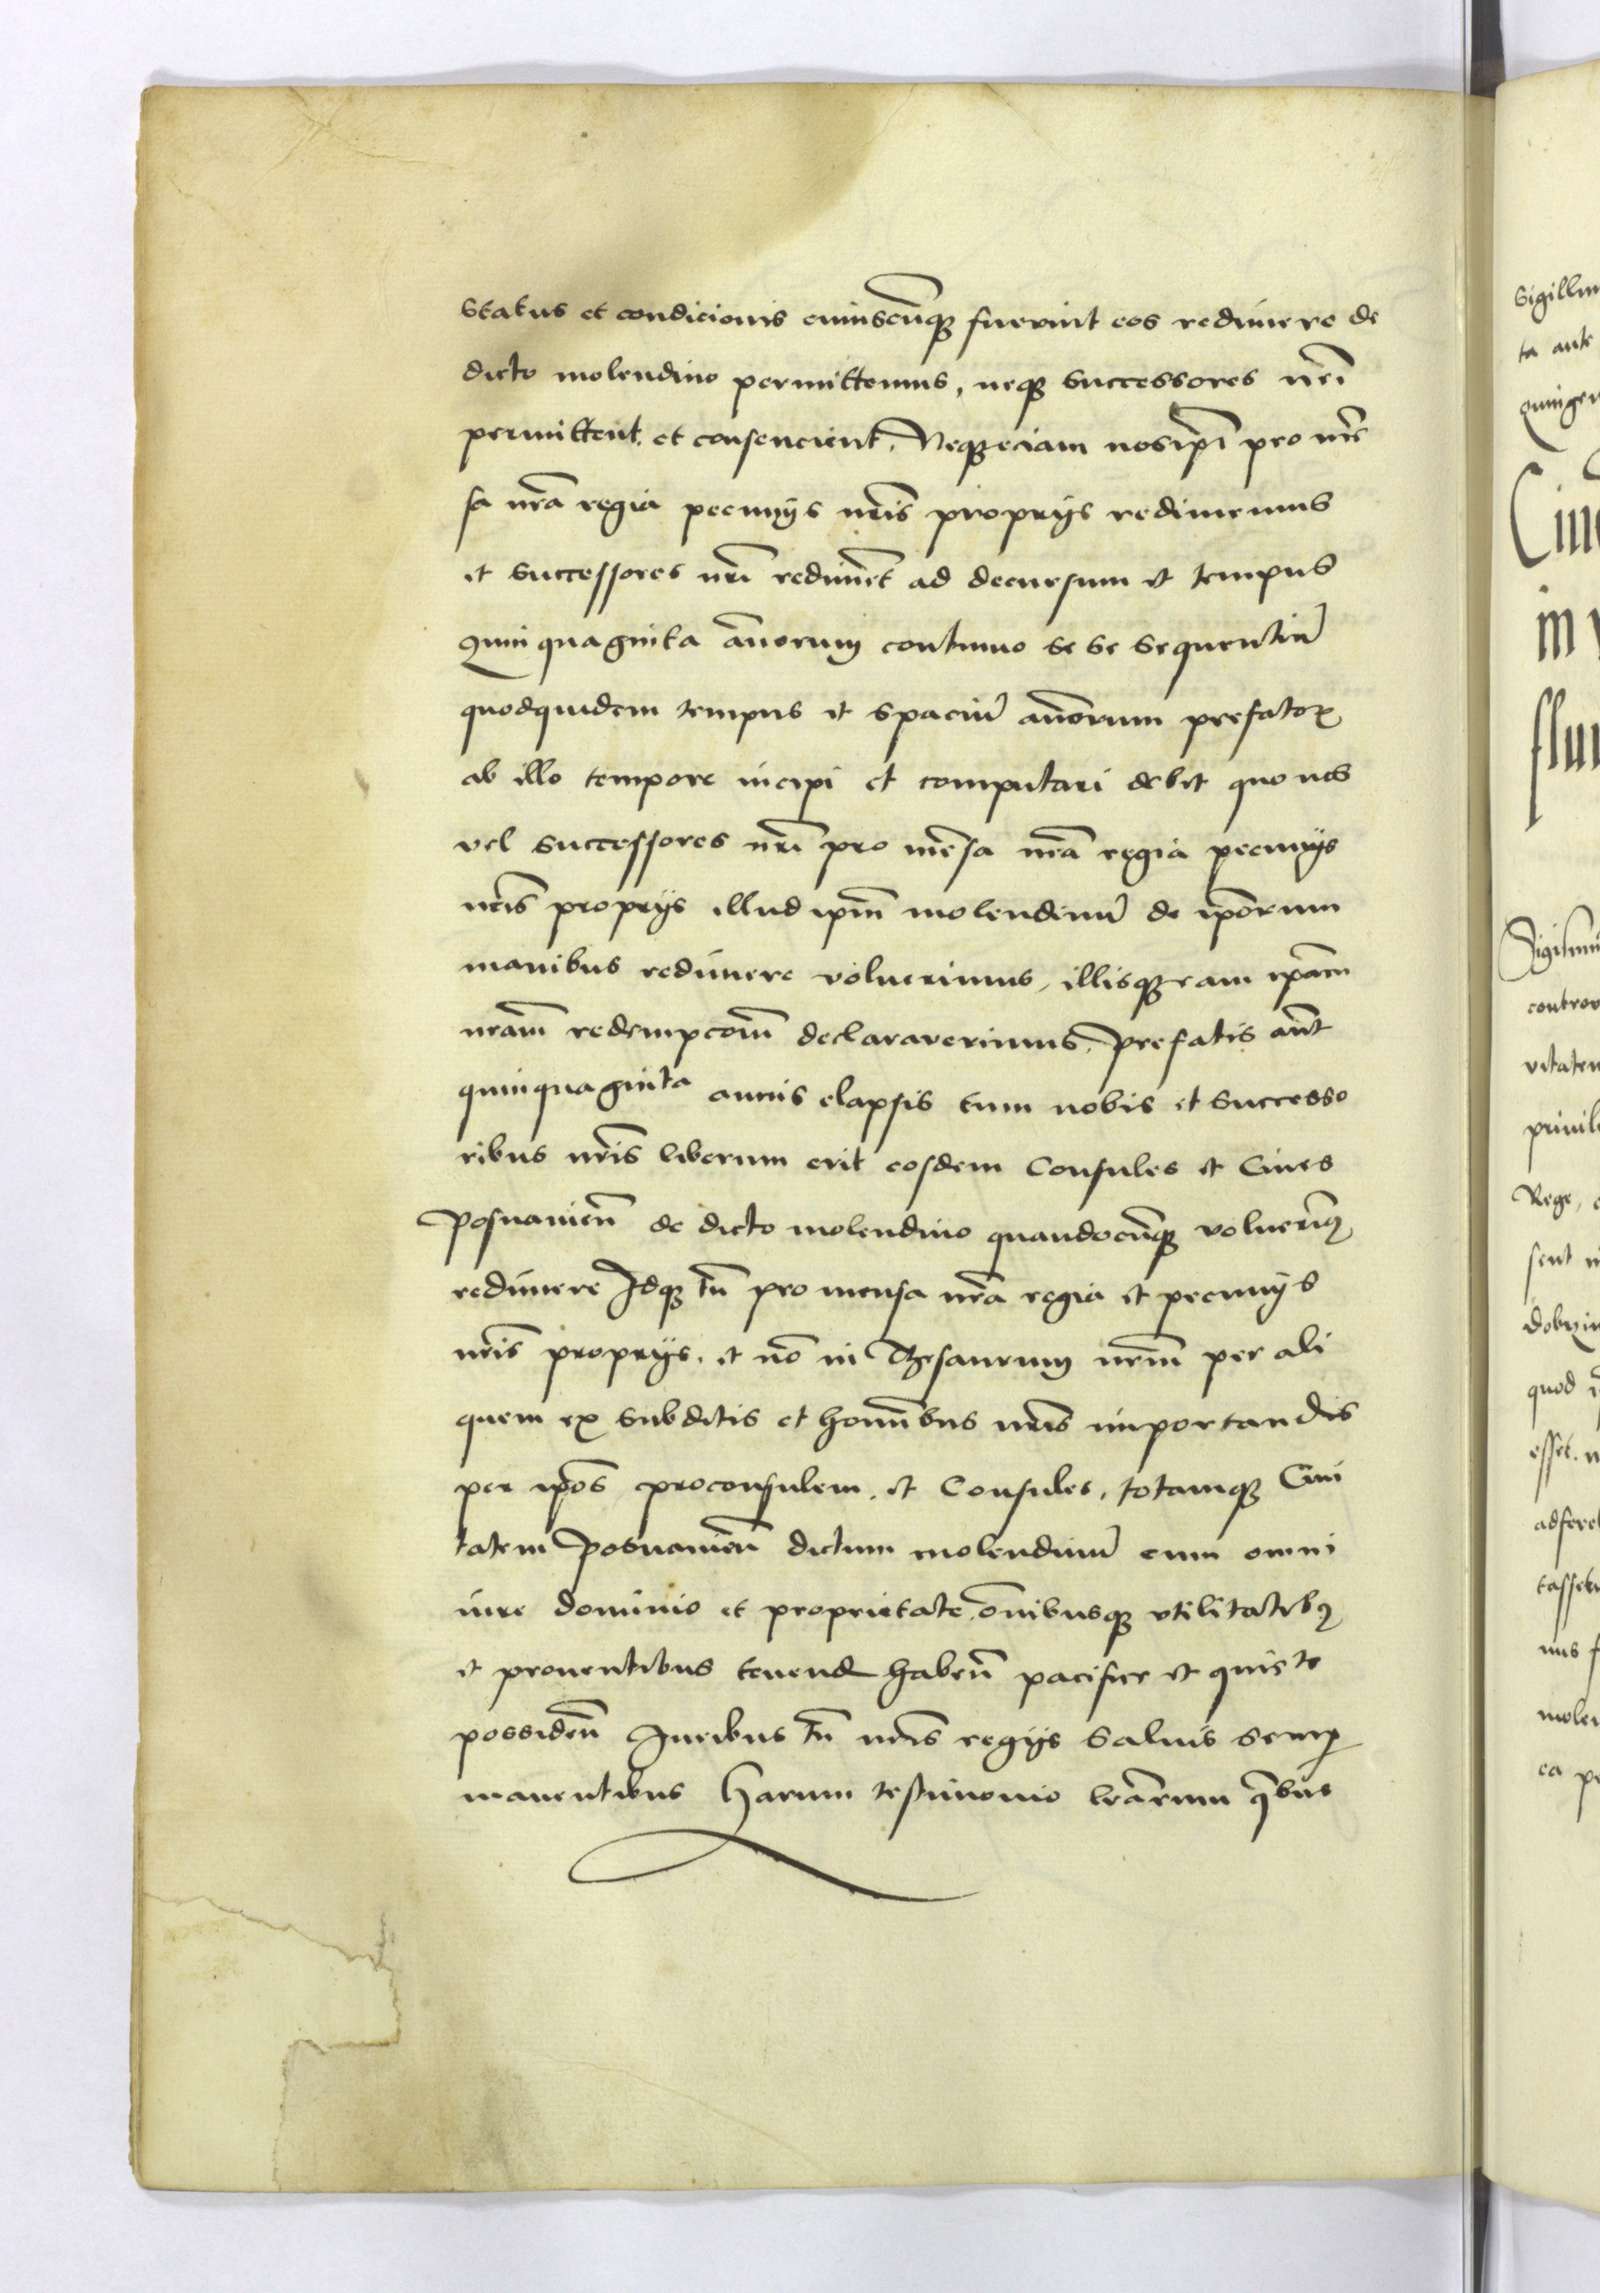 Status et condicionis cuiuscūq̃ fuerint eos redimere de
dicto molendino permittemus, neq̃ successores nr̃i
permittent et consencient. Neq̃ eciam nosip̃i pro mẽ
sa nr̃a regia pecunijs nr̃is proprijs redimemus
et successores nr̃i rediment ad decursum et tempus
Quinquaginta ãnorum continuo se se sequentiũ
quodquidem tempus et spaciũ añorum prefatoꝝ
ab illo tempore incipi et computari debet quo nos
vel successores nr̃i pro mẽsa nr̃a regia pecunijs
nr̃is proprijs illud ip̃m molendinũ de ip̃orum
manibus redimere voluerimus, illisq̃ eam ip̃am
nr̃am redempcõm declaraverimus. Prefatis aũt
quinquaginta annis elapsis tum nobis et successo
ribus nr̃is liberum erit eosdem Consules et Ciues
Posnanieñ de dicto molendino quandocũq̃ voluerimꝰ
redimere Idq̃ tñ pro mensa nr̃a regia et pecunijs
nr̃is proprijs. et nõ in Thesaurum nr̃m per ali
quem ex subditis et hominibus nr̃is importandis
per ip̃os proconsulem. et Consules, totamq̃ Ciui
tatem Posnanieñ dictum molendinũ cum omni
iure dominio et proprietate õnibusq̃ vtilitatibꝰ
et prouentibus tenend habeñ pacifice et quiete
possideñ Iuribus tñ nr̃is regijs saluis semꝑ
manentibus Harum testimonio lr̃arum q̃bus
Sigillu
ta ante
quingen
in
flu
Sigismu
controv
vitatem
priuil
Rege,
sent
quod
esset.
adferet
tasset
nus
molen
ea pe